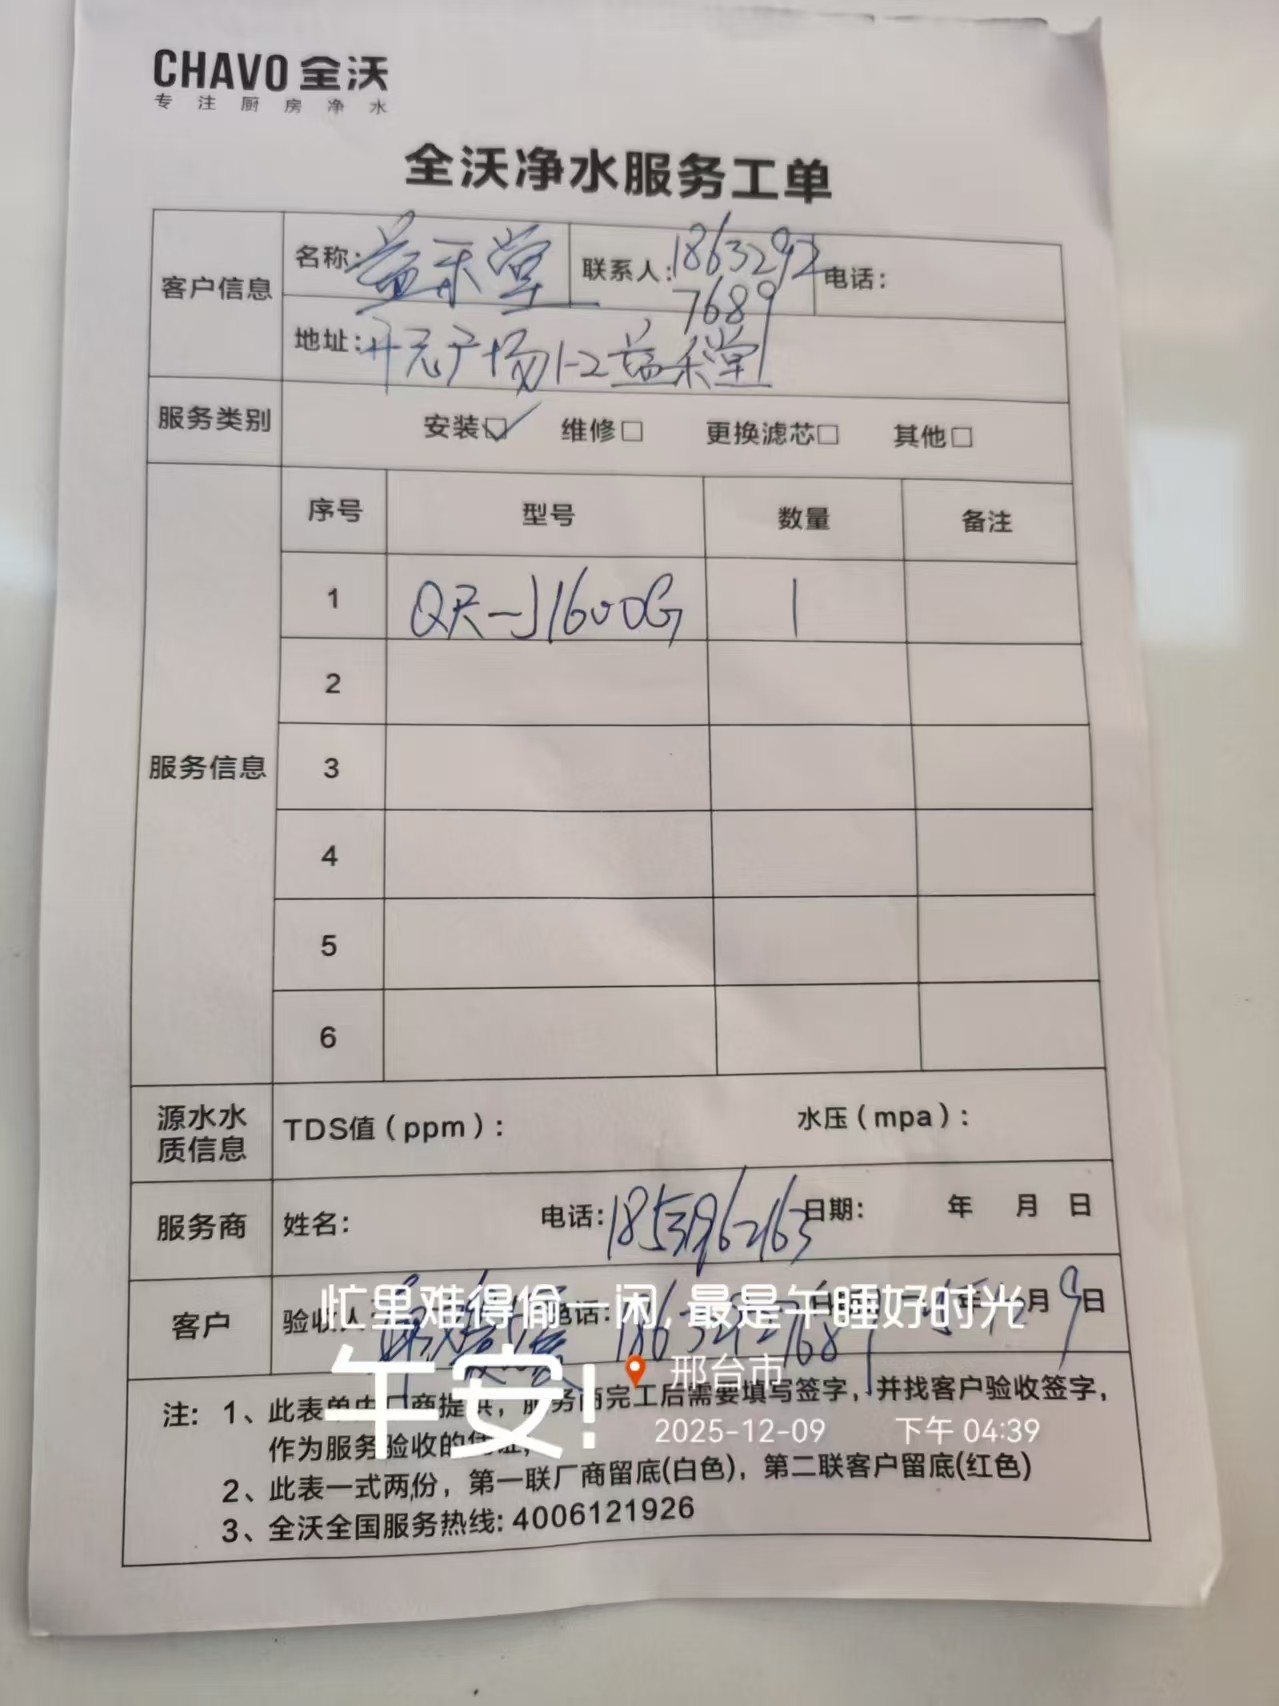 CHAVO 全沃
专注厨房净水
全沃净水服务工单
客户信息 名称: 益禾堂 联系人: 18632927689 电话:
地址: 开元广场1-2益禾堂
服务类别 安装☑ 维修□ 更换滤芯□ 其他□
服务信息 序号 型号 数量 备注
1 QR-J1600G 1
2
3
4
5
6
源水水质信息 TDS值(ppm): 水压(mpa):
服务商 姓名: 电话: 日期: 年 月 日
客户 验收人 电话: 18632927689 月9日
忙里难得偷一闲,最是午睡好时光
午安!
邢台市
2025-12-09 下午 04:39
注: 1、此表单由厂商提供,服务商完工后需要填写签字,并找客户验收签字,
作为服务验收的凭证;
2、此表一式两份,第一联厂商留底(白色),第二联客户留底(红色)
3、全沃全国服务热线: 4006121926